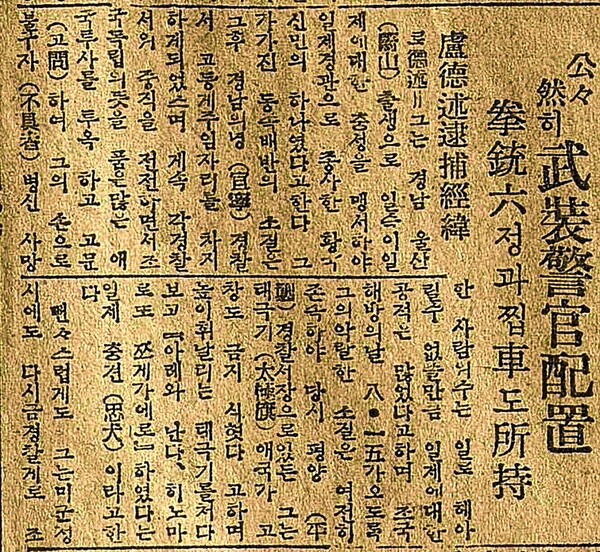 公々然히 武裝警官配置
拳銃六정과찝車도所持
盧德述逮捕經緯
盧德述=그는 경남 울산
(蔚山) 출생으로 일즉이일
제에대한 충성을 맹서하야
일제경관으로 종사한 황국
신민의 하나였다고한다 그
가가진 동족배반의 소질은
그후 경남의녕(宜寧) 경찰
서 고등게주임자리를 차지
하게되었스며 게속 각경찰
서의 중직을 전전하면서조
국독립의뜻을 품은많은 애
국투사를 투옥 하고 고문
(고問)하여 그의 손으로
불우자(不具者) 병신 사망
한 사람의수는 일로 헤아
릴수 없을만큼 일제에대한
공적은 많았다고하며 조국
해방의날 八·一五가오도록
그의악랄한 소질은 여전히
존속하야 당시 평양 (平
壤) 경찰서장으로있든 그는
태극기(太極旗) 애국가 고
창도 금지 시혓다 고하며
높이휘날리는 태극기를처다
보고 『아레와 난다, 히노마
로또 쯔게가에로』하였다는
일제 충견(忠犬)이라고한
다
뻔々스럽게도 그는미군정
시에도 다시금경찰게로 조